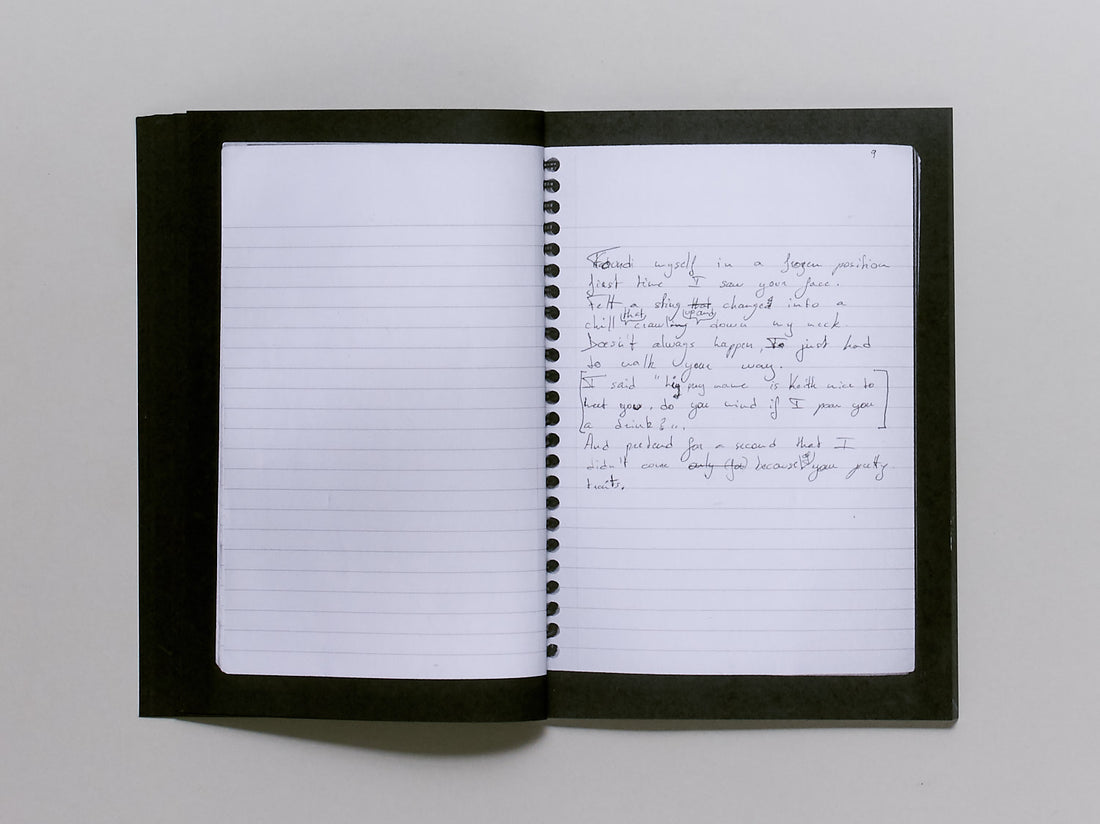 9
Found myself in a frozen position
first time I saw your face.
Felt a sting that changed into a
that up and
chill crawling down my neck.
Doesn't always happen, I just had
to walk your way.
[I said "hi my name is Keith nice to
meet you, do you mind if I pour you
a drink?".]
And pretend for a second that I
of
didn't come only for because your pretty
traits.